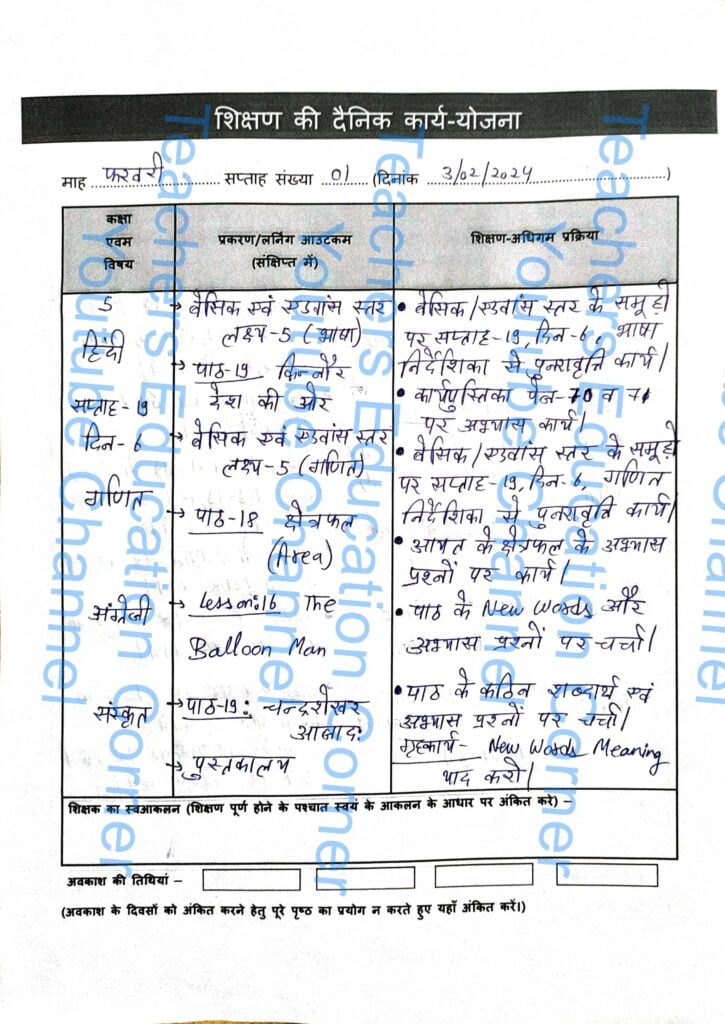 शिक्षण की दैनिक कार्य-योजना
माह फरवरी सप्ताह संख्या 01 (दिनांक 3/02/2024)
कक्षा
एवम
विषय
प्रकरण/लर्निंग आउटकम
(संक्षिप्त में)
शिक्षण-अधिगम प्रक्रिया
5
हिंदी
सप्ताह-19
दिन-6
गणित
अंग्रेजी
संस्कृत
→ बेसिक एवं एडवांस स्तर
लक्ष्य-5 (भाषा)
→ पाठ-19 किन्नौर
देश की ओर
→ बेसिक एवं एडवांस स्तर
लक्ष्य-5 (गणित)
→ पाठ-18 क्षेत्रफल
(Area)
→ Lesson:16 The
Balloon Man
→ पाठ-19: चन्द्रशेखर
आजाद:
→ पुस्तकालय
• बेसिक/एडवांस स्तर के समूहों
पर सप्ताह-19, दिन-6, भाषा
निर्देशिका से पुनरावृत्ति कार्य।
• कार्यपुस्तिका पेज-70 व 71
पर अभ्यास कार्य।
• बेसिक/एडवांस स्तर के समूहों
पर सप्ताह-19, दिन-6, गणित
निर्देशिका से पुनरावृत्ति कार्य।
• आयत के क्षेत्रफल के अभ्यास
प्रश्नों पर कार्य।
• पाठ के New Words और
अभ्यास प्रश्नों पर चर्चा।
• पाठ के कठिन शब्दार्थ एवं
अभ्यास प्रश्नों पर चर्चा।
गृहकार्य- New Words Meaning
याद करो।
शिक्षक का स्वआकलन (शिक्षण पूर्ण होने के पश्चात स्वयं के आकलन के आधार पर अंकित करे) –
अवकाश की तिथियां –
(अवकाश के दिवसों को अंकित करने हेतु पूरे पृष्ठ का प्रयोग न करते हुए यहाँ अंकित करें।)
Teachers Education Corner
Youtube Channel
Teachers Education Corner
Youtube Channel